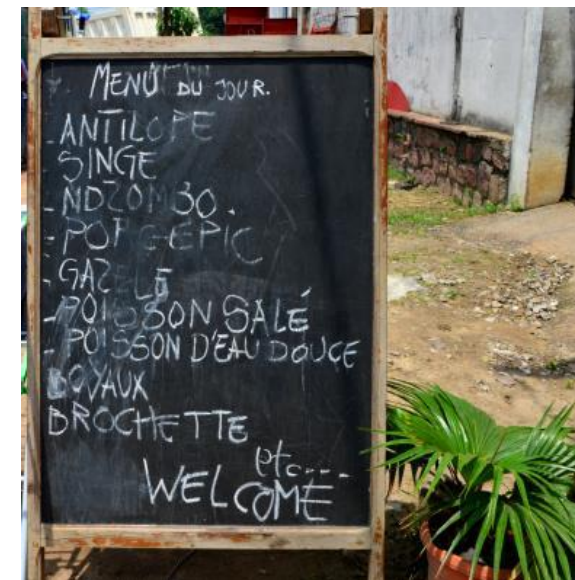 MENU DU JOUR.
- ANTILOPE
SINGE
- NDZOMBO.
- PORC-EPIC
- GAZELE
- POISSON SALÉ
- POISSON D'EAU DOUCE
BOYAUX
BROCHETTE
etc---
WELCOME